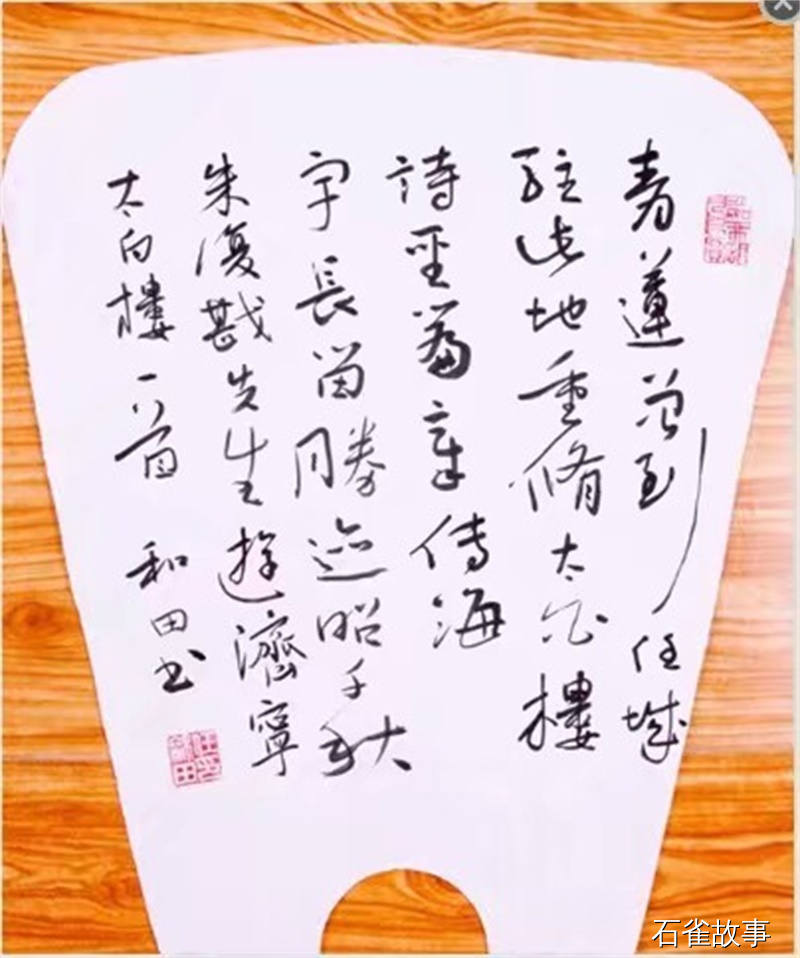 青蓮曾到任城
駐此地重脩太白樓
詩聖篇章傳海
宇長留勝迹昭千秋
朱復戡先生遊濟寧
太白樓一首 和田书
石雀故事